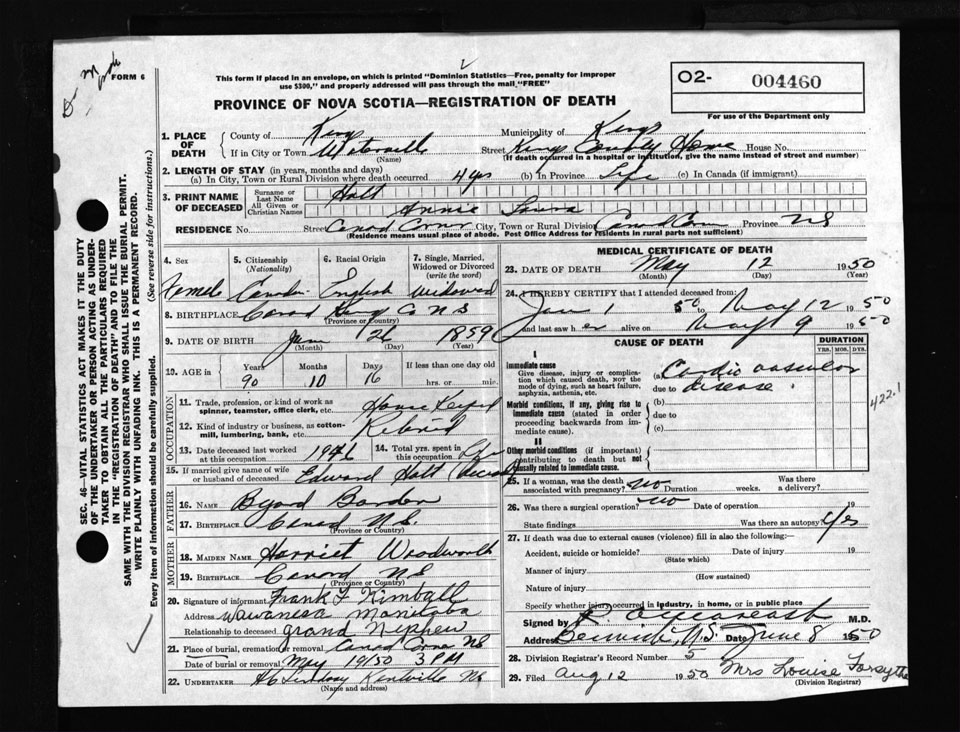 FORM 6
This form if placed in an envelope, on which is printed "Dominion Statistics—Free, penalty for improper
use $300," and properly addressed will pass through the mail "FREE"
O2- 004460
For use of the Department only
PROVINCE OF NOVA SCOTIA—REGISTRATION OF DEATH
SEC. 46—VITAL STATISTICS ACT MAKES IT THE DUTY
OF THE UNDERTAKER OR PERSON ACTING AS UNDER-
TAKER TO OBTAIN ALL THE PARTICULARS REQUIRED
IN THE "REGISTRATION OF DEATH" AND TO FILE THE
SAME WITH THE DIVISION REGISTRAR WHO SHALL ISSUE THE BURIAL PERMIT.
WRITE PLAINLY WITH UNFADING INK. THIS IS A PERMANENT RECORD.
Every item of information should be carefully supplied. (See reverse side for instructions.)
1. PLACE OF DEATH County of Kings Municipality of Kings
If in City or Town Waterville Street Kings County Home House No.
(Name) (If death occurred in a hospital or institution, give the name instead of street and number)
2. LENGTH OF STAY (in years, months and days)
(a) In City, Town or Rural Division where death occurred 4 yrs (b) In Province Life (c) In Canada (if immigrant)
3. PRINT NAME OF DECEASED Surname or Last Name Holt
All Given or Christian Names Annie Laura
RESIDENCE No. Street City, Town or Rural Division Province NS
(Residence means usual place of abode. Post Office Address for residents in rural parts not sufficient)
4. Sex 5. Citizenship (Nationality) 6. Racial Origin 7. Single, Married, Widowed or Divorced (write the word)
Female English Widowed
8. BIRTHPLACE Kings Co NS
(Province or Country)
9. DATE OF BIRTH June 1859
(Month) (Day) (Year)
10. AGE in Years Months Days If less than one day
90 10 16 hrs. or min.
OCCUPATION
11. Trade, profession, or kind of work as spinner, teamster, office clerk, etc.
12. Kind of industry or business, as cotton-mill, lumbering, bank, etc.
13. Date deceased last worked at this occupation 1946 14. Total yrs. spent in this occupation Life
15. If married give name of wife or husband of deceased Edward Holt
FATHER
16. NAME
17. BIRTHPLACE N.S.
(Province or Country)
MOTHER
18. MAIDEN NAME Harriet Woodworth
19. BIRTHPLACE NS
(Province or Country)
20. Signature of informant Frank F Kimball
Address Wawanesa Manitoba
Relationship to deceased Grand Nephew
21. Place of burial, cremation or removal NS
Date of burial or removal May 19/50 3 PM
22. UNDERTAKER Lindsay Kentville NS
(Name and address)
MEDICAL CERTIFICATE OF DEATH
23. DATE OF DEATH May 12 1950
(Month) (Day) (Year)
24. I HEREBY CERTIFY that I attended deceased from:
50 to May 12 1950
and last saw her alive on May 9 1950
CAUSE OF DEATH
DURATION
YRS. MOS. DYS.
I
Immediate cause
Give disease, injury or complication which caused death, NOT the mode of dying, such as heart failure, asphyxia, asthenia, etc.
(a) Cardio vascular
due to disease
Morbid conditions, if any, giving rise to immediate cause (stated in order proceeding backwards from immediate cause).
(b)
due to
(c)
422.1
II
Other morbid conditions (if important) contributing to death but not causally related to immediate cause.
25. If a woman, was the death associated with pregnancy? no Duration weeks. Was there a delivery?
26. Was there a surgical operation? no Date of operation 19
State findings Was there an autopsy? yes
27. If death was due to external causes (violence) fill in also the following:—
Accident, suicide or homicide? Date of injury 19
(State which)
Manner of injury
(How sustained)
Nature of injury
Specify whether injury occurred in industry, in home, or in public place
Signed by M.D.
Address Berwick, N.S. Date June 8 1950
28. Division Registrar's Record Number 5
29. Filed Aug 12 1950 Mrs Louise Forsythe
(Division Registrar)